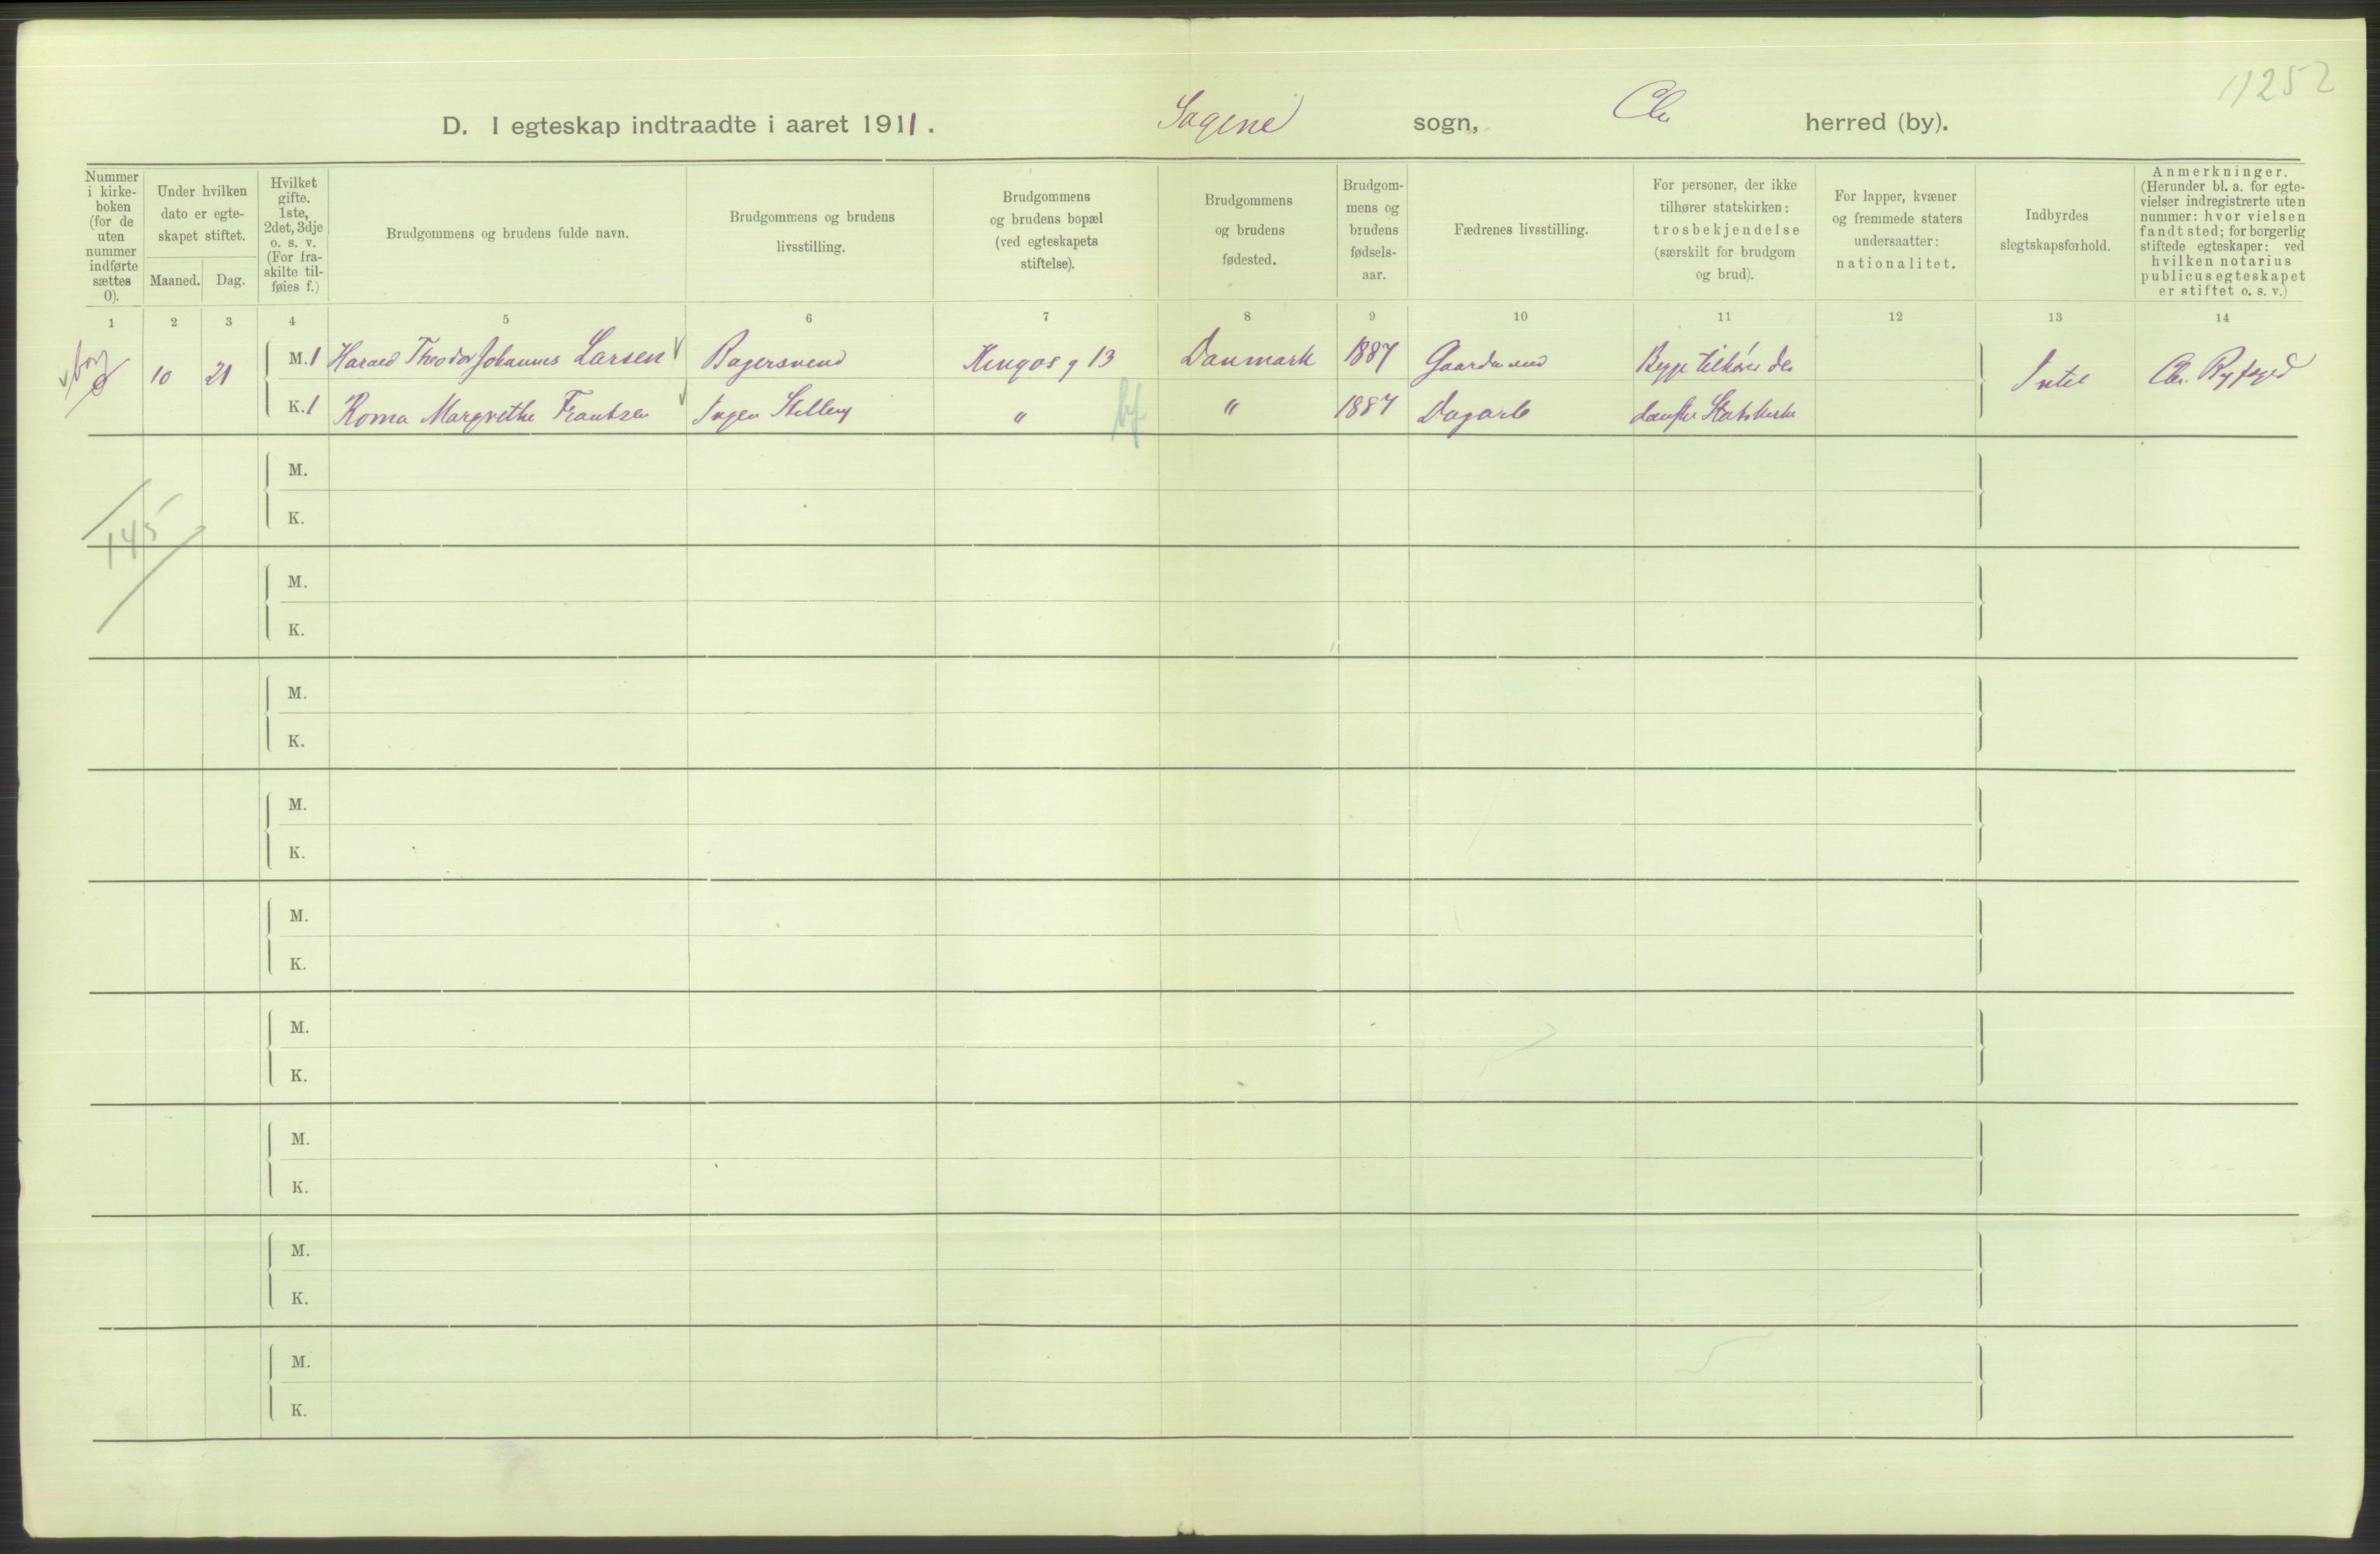 11252
D. I egteskap indtraadte i aaret 1911. Sagene sogn, Chr herred (by).
Nummer i kirke-boken (for de uten nummer indførte sættes 0).
Under hvilken dato er egte-skapet stiftet.
Maaned. Dag.
Hvilket gifte. 1ste, 2det, 3dje o. s. v. (For fra-skilte til-føies f.)
Brudgommens og brudens fulde navn.
Brudgommens og brudens livsstilling.
Brudgommens og brudens bopæl (ved egteskapets stiftelse).
Brudgommens og brudens fødested.
Brudgom-mens og brudens fødsels-aar.
Fædrenes livsstilling.
For personer, der ikke tilhører statskirken: trosbekjendelse (særskilt for brudgom og brud).
For lapper, kvæner og fremmede staters undersaatter: nationalitet.
Indbyrdes slegtskapsforhold.
Anmerkninger. (Herunder bl. a. for egte-vielser indregistrerte uten nummer: hvor vielsen fandt sted; for borgerlig stiftede egteskaper: ved hvilken notarius publicus egteskapet er stiftet o. s. v.)
1 2 3 4 5 6 7 8 9 10 11 12 13 14
borg 0 10 21 M. 1 Harald Theodor Johannes Larsen Bagersvend Kingos g 13 Danmark 1887 Gaardmand Begge tilhører den Intet Chr. Byfoged
K. 1 Roma Margrethe Frantzen Ingen Stilling " bf " 1887 Dagarb danske Statskirke
M.
K.
145
M.
K.
M.
K.
M.
K.
M.
K.
M.
K.
M.
K.
M.
K.
M.
K.